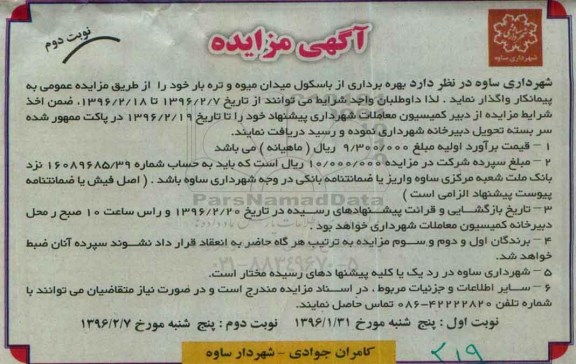 نوبت دوم
آگهی مزایده
شهرداری ساوه
شهرداری ساوه در نظر دارد بهره برداری از باسکول میدان میوه و تره بار خود را از طریق مزایده عمومی به
پیمانکار واگذار نماید . لذا داوطلبان واجد شرایط می توانند از تاریخ ۱۳۹۶/۲/۷ تا ۱۳۹۶/۲/۱۸، ضمن اخذ
شرایط مزایده از دبیر کمیسیون معاملات شهرداری پیشنهاد خود را تا تاریخ ۱۳۹۶/۲/۱۹ در پاکت ممهور شده
سر بسته تحویل دبیرخانه شهرداری نموده و رسید دریافت نمایند.
۱ – قیمت برآورد اولیه مبلغ ۹/۳۰۰/۰۰۰ ریال ( ماهیانه ) می باشد
۲ – مبلغ سپرده شرکت در مزایده ۱۰/۰۰۰/۰۰۰ ریال است که باید به حساب شماره ۱۶۰۸۹۶۸۵/۳۹ نزد
بانک ملت شعبه مرکزی ساوه واریز یا ضمانتنامه بانکی در وجه شهرداری ساوه باشد . ( اصل فیش یا ضمانتنامه
پیوست پیشنهاد الزامی است )
ParsNamadData
۳ – تاریخ بازگشایی و قرائت پیشنهادهای رسیده در تاریخ ۱۳۹۶/۲/۲۰ و راس ساعت ۱۰ صبح ر محل
دبیرخانه کمیسیون معاملات شهرداری خواهد بود .
۴ – برندگان اول و دوم و سوم مزایده به ترتیب هر گاه حاضر به انعقاد قرار داد نشوند سپرده آنان ضبط
خواهد شد.
۰۲۱-۸۸۳۴۹۶۷۰-۵
۵ – شهرداری ساوه در رد یک یا کلیه پیشنها دهای رسیده مختار است.
۶ – سایر اطلاعات و جزئیات مربوط ، در اسناد مزایده مندرج است و در صورت نیاز متقاضیان می توانند با
شماره تلفن ۴۲۲۲۲۸۲۰-۰۸۶ تماس حاصل نمایند.
نوبت اول : پنج شنبه مورخ ۱۳۹۶/۱/۳۱ نوبت دوم : پنج شنبه مورخ ۱۳۹۶/۲/۷
کامران جوادی – شهردار ساوه
۲۱۹